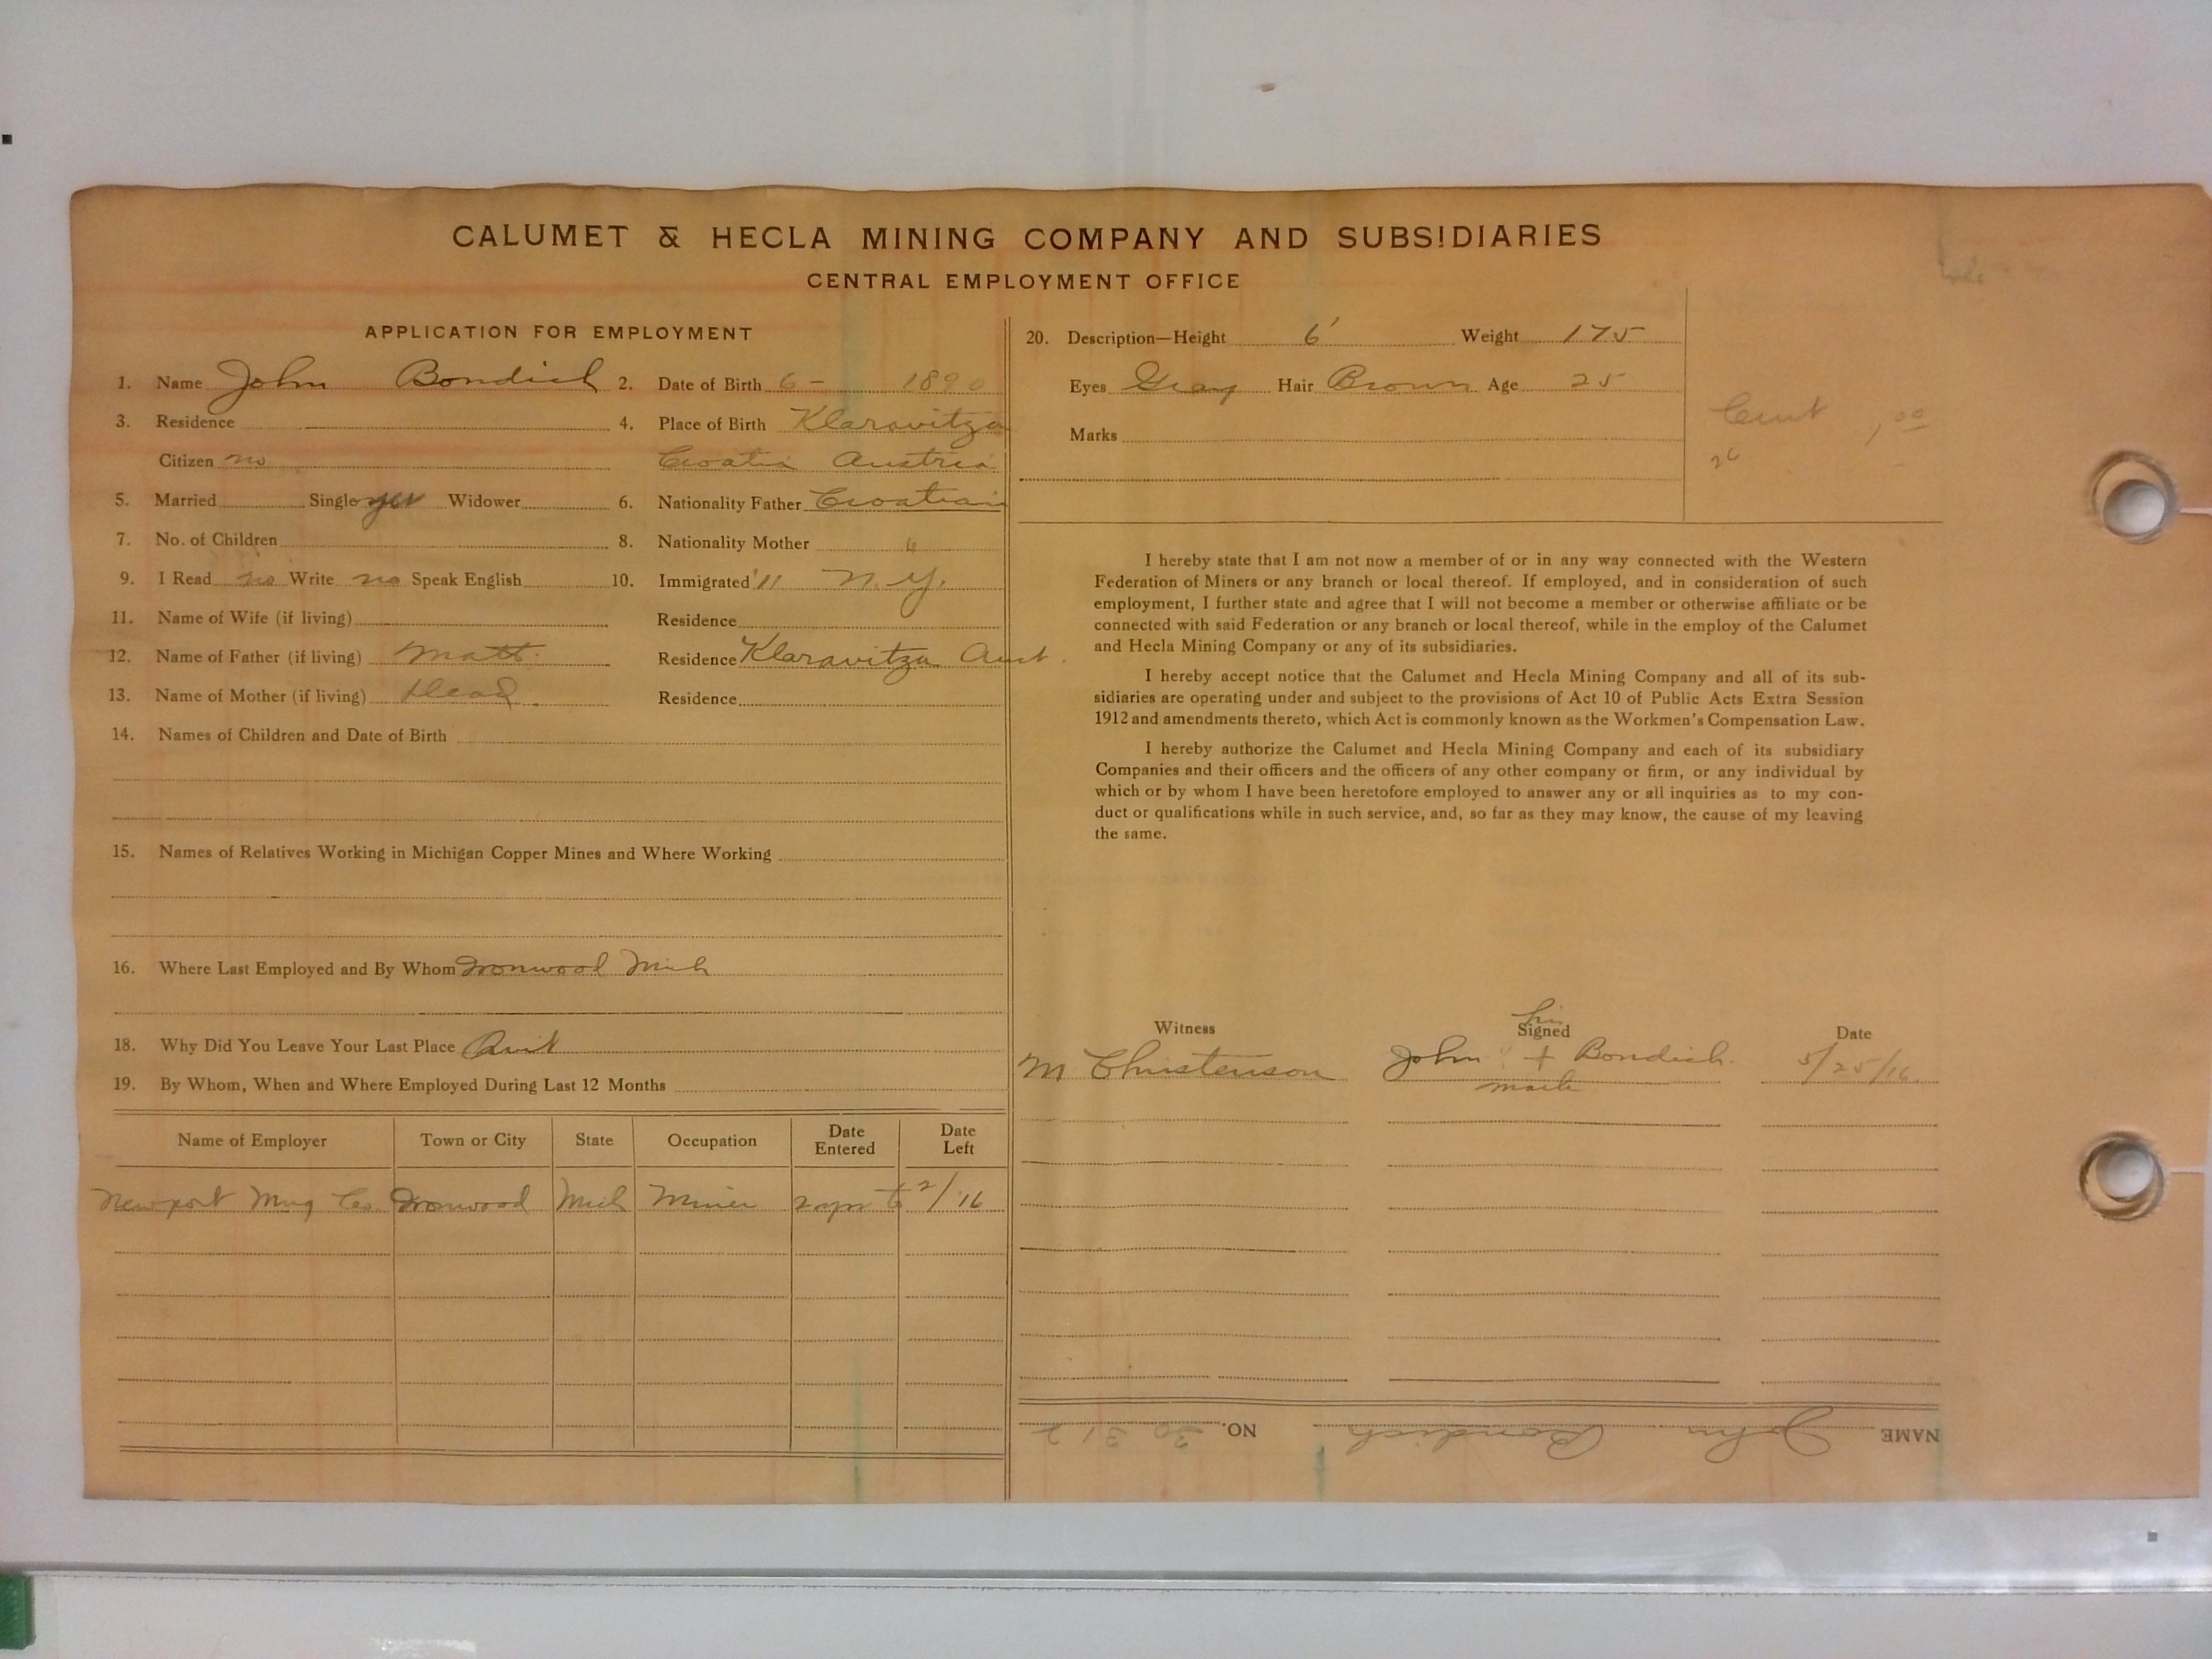 CALUMET & HECLA MINING COMPANY AND SUBSIDIARIES
CENTRAL EMPLOYMENT OFFICE
APPLICATION FOR EMPLOYMENT
1. Name John Bondich 2. Date of Birth 6 - 1890
3. Residence 4. Place of Birth Klaravitza
Citizen no Croatia Austria
5. Married Single yes Widower 6. Nationality Father Croatian
7. No. of Children 8. Nationality Mother "
9. I Read no Write no Speak English 10. Immigrated '11 N.Y.
11. Name of Wife (if living) Residence
12. Name of Father (if living) Matt Residence Klaravitza Aust.
13. Name of Mother (if living) Dead Residence
14. Names of Children and Date of Birth
15. Names of Relatives Working in Michigan Copper Mines and Where Working
16. Where Last Employed and By Whom Ironwood Mich
18. Why Did You Leave Your Last Place Quit
19. By Whom, When and Where Employed During Last 12 Months
Name of Employer Town or City State Occupation Date Entered Date Left
Newport Mng Co. Ironwood Mich Miner 2 yrs to 2/'16
20. Description—Height 6' Weight 175
Eyes Gray Hair Brown Age 25
Marks
1,00
26
I hereby state that I am not now a member of or in any way connected with the Western
Federation of Miners or any branch or local thereof. If employed, and in consideration of such
employment, I further state and agree that I will not become a member or otherwise affiliate or be
connected with said Federation or any branch or local thereof, while in the employ of the Calumet
and Hecla Mining Company or any of its subsidiaries.
I hereby accept notice that the Calumet and Hecla Mining Company and all of its sub-
sidiaries are operating under and subject to the provisions of Act 10 of Public Acts Extra Session
1912 and amendments thereto, which Act is commonly known as the Workmen's Compensation Law.
I hereby authorize the Calumet and Hecla Mining Company and each of its subsidiary
Companies and their officers and the officers of any other company or firm, or any individual by
which or by whom I have been heretofore employed to answer any or all inquiries as to my con-
duct or qualifications while in such service, and, so far as they may know, the cause of my leaving
the same.
Witness Signed Date
his
M Christenson John + Bondich. 5/25/16.
mark
NAME John Bondich NO. 30312